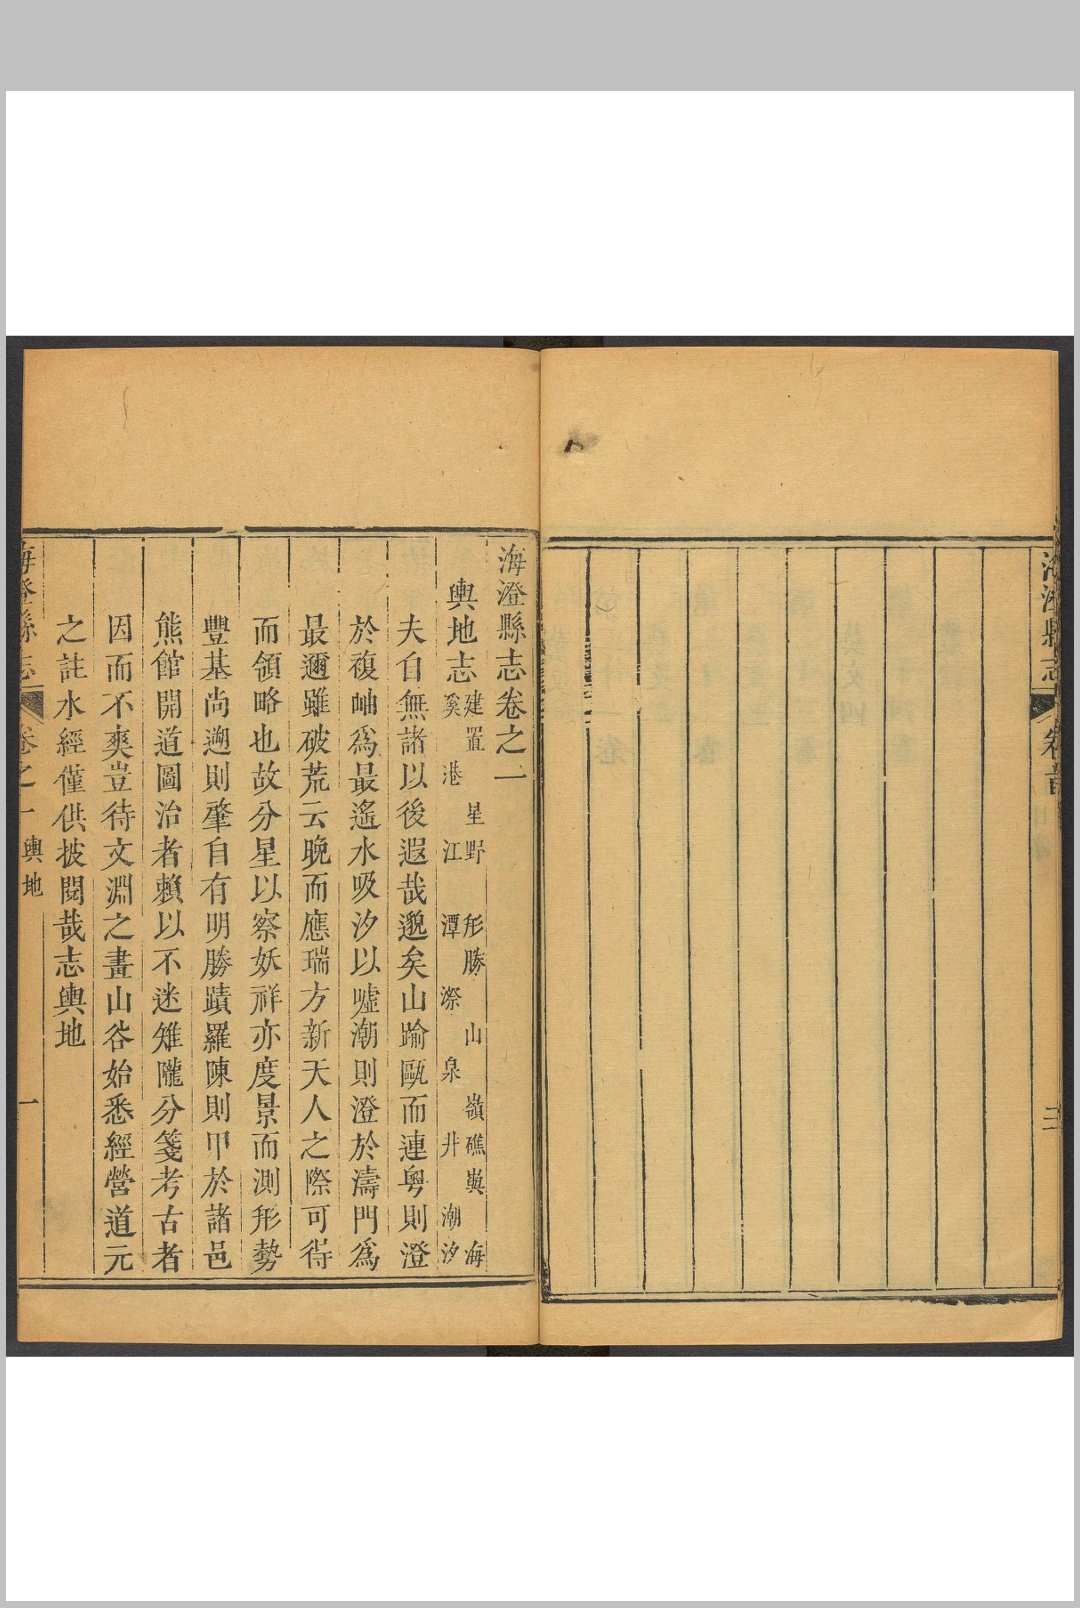 海澄縣志
卷首
三
海澄縣志卷之一
輿地志
建置 星野 形勝 山 嶺 礁嶼 海
溪 港 江 潭 漈 泉 井 潮汐
夫自無諸以後遐哉邈矣山踰甌而連粵則澄
於複岫爲最遙水吸汐以噓潮則澄於濤門爲
最邇雖破荒云晚而應瑞方新天人之際可得
而領略也故分星以察妖祥亦度景而測形勢
豐基尚遡則肇自有明勝蹟羅陳則甲於諸邑
熊館開道圖治者賴以不迷雉隴分箋考古者
因而不爽豈待文淵之畫山谷始悉經營道元
之註水經僅供披閱哉志輿地
海澄縣志
卷之一
輿地
一